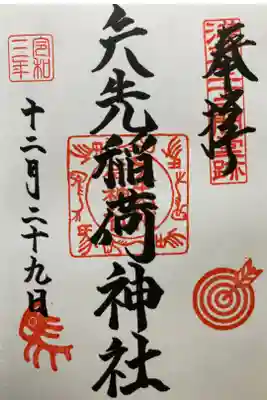 奉拝
矢先稲荷神社
令和三年
十二月二十九日